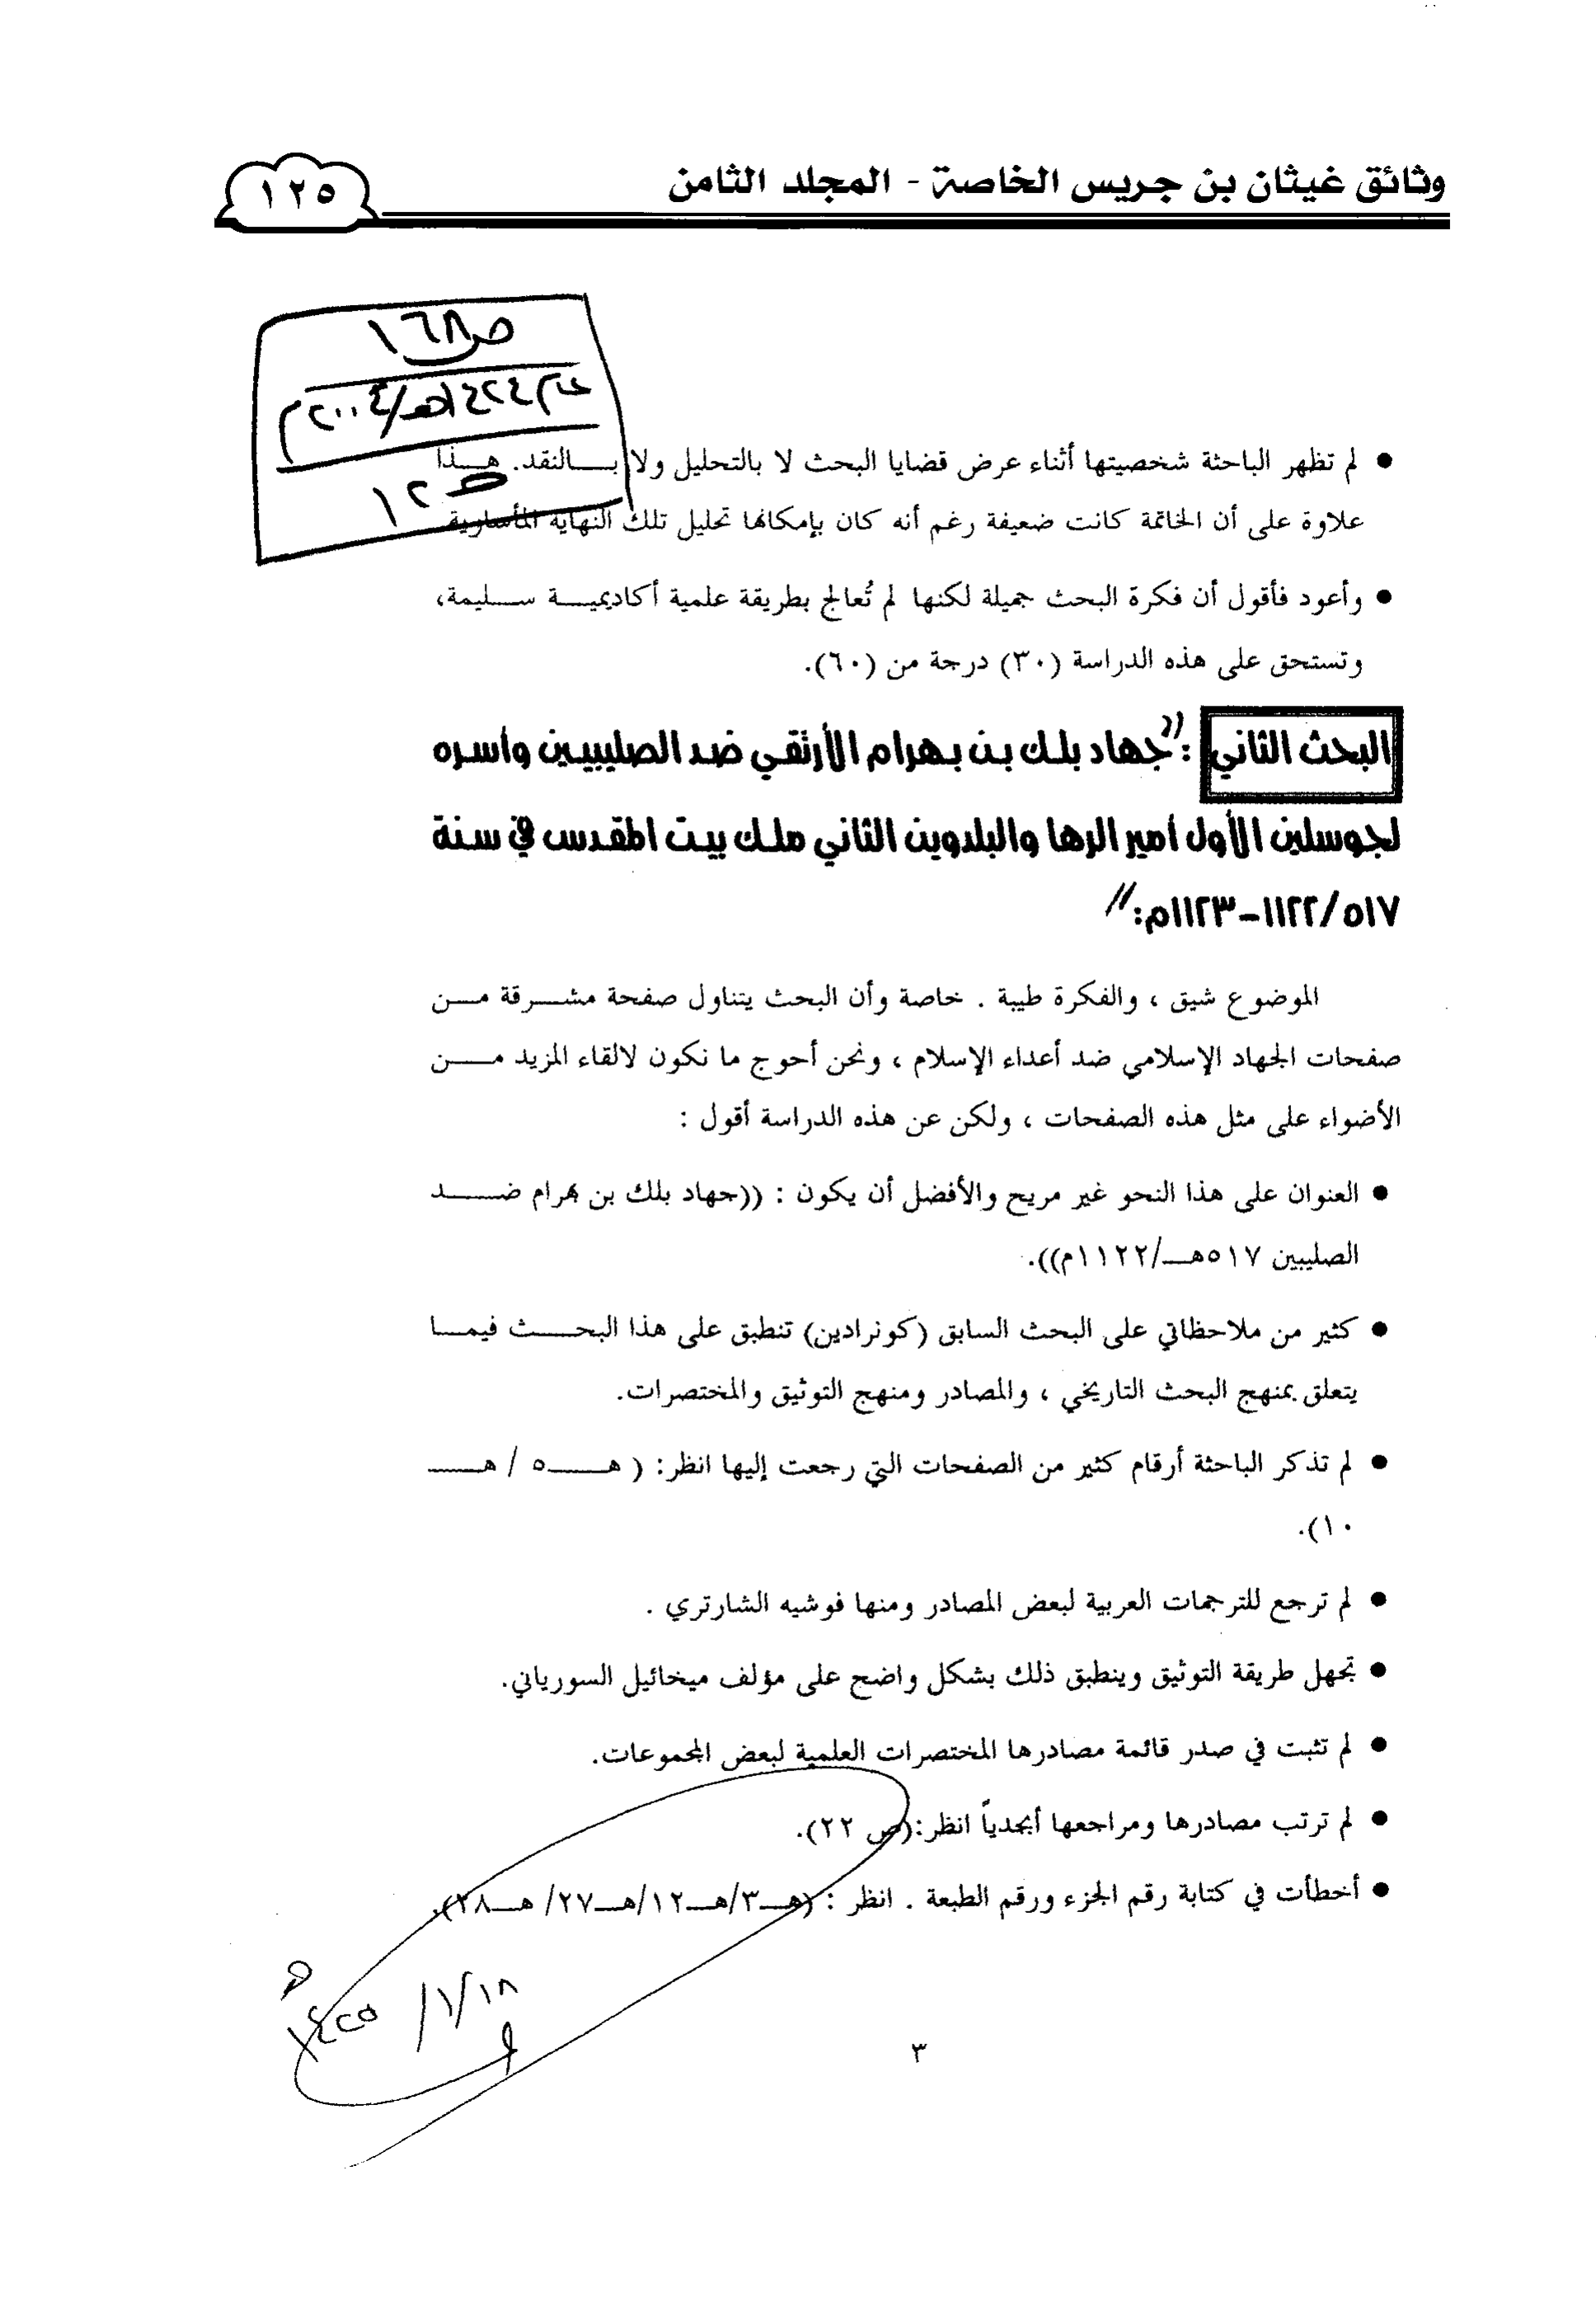 وثائق غيثان بن جريس الخاصة - المجلد الثامن
١٢٥
ص ١٦٨
عام ١٤٢٤هـ/٢٠٠٤م
ص ١٢
• لم تظهر الباحثة شخصيتها أثناء عرض قضايا البحث لا بالتحليل ولا بالنقد. هذا
علاوة على أن الخاتمة كانت ضعيفة رغم أنه كان بإمكانها تحليل تلك النهاية المأساوية
• وأعود فأقول أن فكرة البحث جميلة لكنها لم تُعالج بطريقة علمية أكاديمية سليمة،
وتستحق على هذه الدراسة (٣٠) درجة من (٦٠).
البحث الثاني : "جهاد بلك بن بهرام الأرتقي ضد الصليبيين وأسره
لجوسلين الأول أمير الرها والبلدوين الثاني ملك بيت المقدس في سنة
٥١٧/١١٢٢-١١٢٣م:"
الموضوع شيق ، والفكرة طيبة . خاصة وأن البحث يتناول صفحة مشرقة من
صفحات الجهاد الإسلامي ضد أعداء الإسلام ، ونحن أحوج ما نكون لالقاء المزيد من
الأضواء على مثل هذه الصفحات ، ولكن عن هذه الدراسة أقول :
• العنوان على هذا النحو غير مريح والأفضل أن يكون : ((جهاد بلك بن بهرام ضد
الصليبين ٥١٧هـ/١١٢٢م)).
• كثير من ملاحظاتي على البحث السابق (كونرادين) تنطبق على هذا البحث فيما
يتعلق بمنهج البحث التاريخي ، والمصادر ومنهج التوثيق والمختصرات.
• لم تذكر الباحثة أرقام كثير من الصفحات التي رجعت إليها انظر: ( هـ ٥ / هـ
١٠).
• لم ترجع للترجمات العربية لبعض المصادر ومنها فوشيه الشارتري .
• تجهل طريقة التوثيق وينطبق ذلك بشكل واضح على مؤلف ميخائيل السورياني.
• لم تثبت في صدر قائمة مصادرها المختصرات العلمية لبعض المجموعات.
• لم ترتب مصادرها ومراجعها أبجدياً انظر:(ص ٢٢).
• أخطأت في كتابة رقم الجزء ورقم الطبعة . انظر : (هـ٣/هـ١٢/هـ٢٧/ هـ٢٨).
١٨/١/١٤٢٥هـ
٣